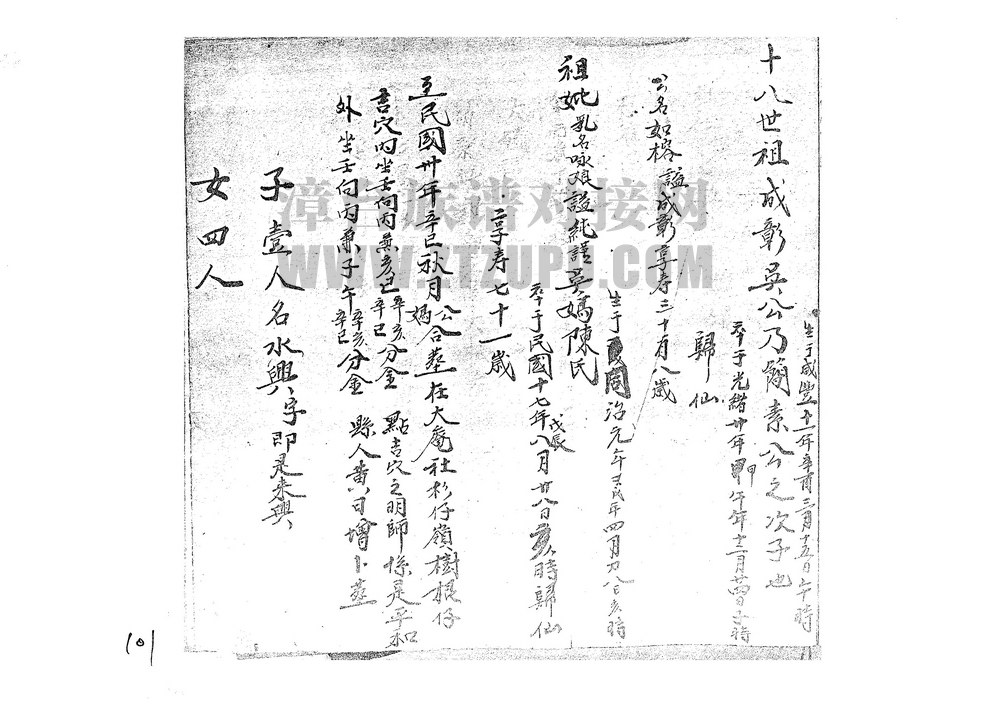 十八世祖成彰吳公乃簡素公之次子也
生于咸豐十一年辛酉三月十五日午時
卒于光緒廿年甲午年十二月廿四日子時
歸仙
公名如榕諡成彰享寿三十有八歲
生于同治元年壬戌年四月初八日亥時
祖妣乳名咏娘諡純謹吳媽陳氏
卒于民國十七年戊辰八月廿八日亥時歸仙
享寿七十一歲
至民國卅年辛巳秋月公媽合葬在大庵社杉仔嶺樹棍仔
吉穴內坐壬向丙兼亥巳辛亥辛巳分金 點吉穴之明師係是平和
外坐壬向丙兼子午辛亥辛巳分金 縣人黄曰增卜葬
子壹人名水興字即是來興
女四人
漳台族谱对接网
WWW.ZTZUPU.COM
101